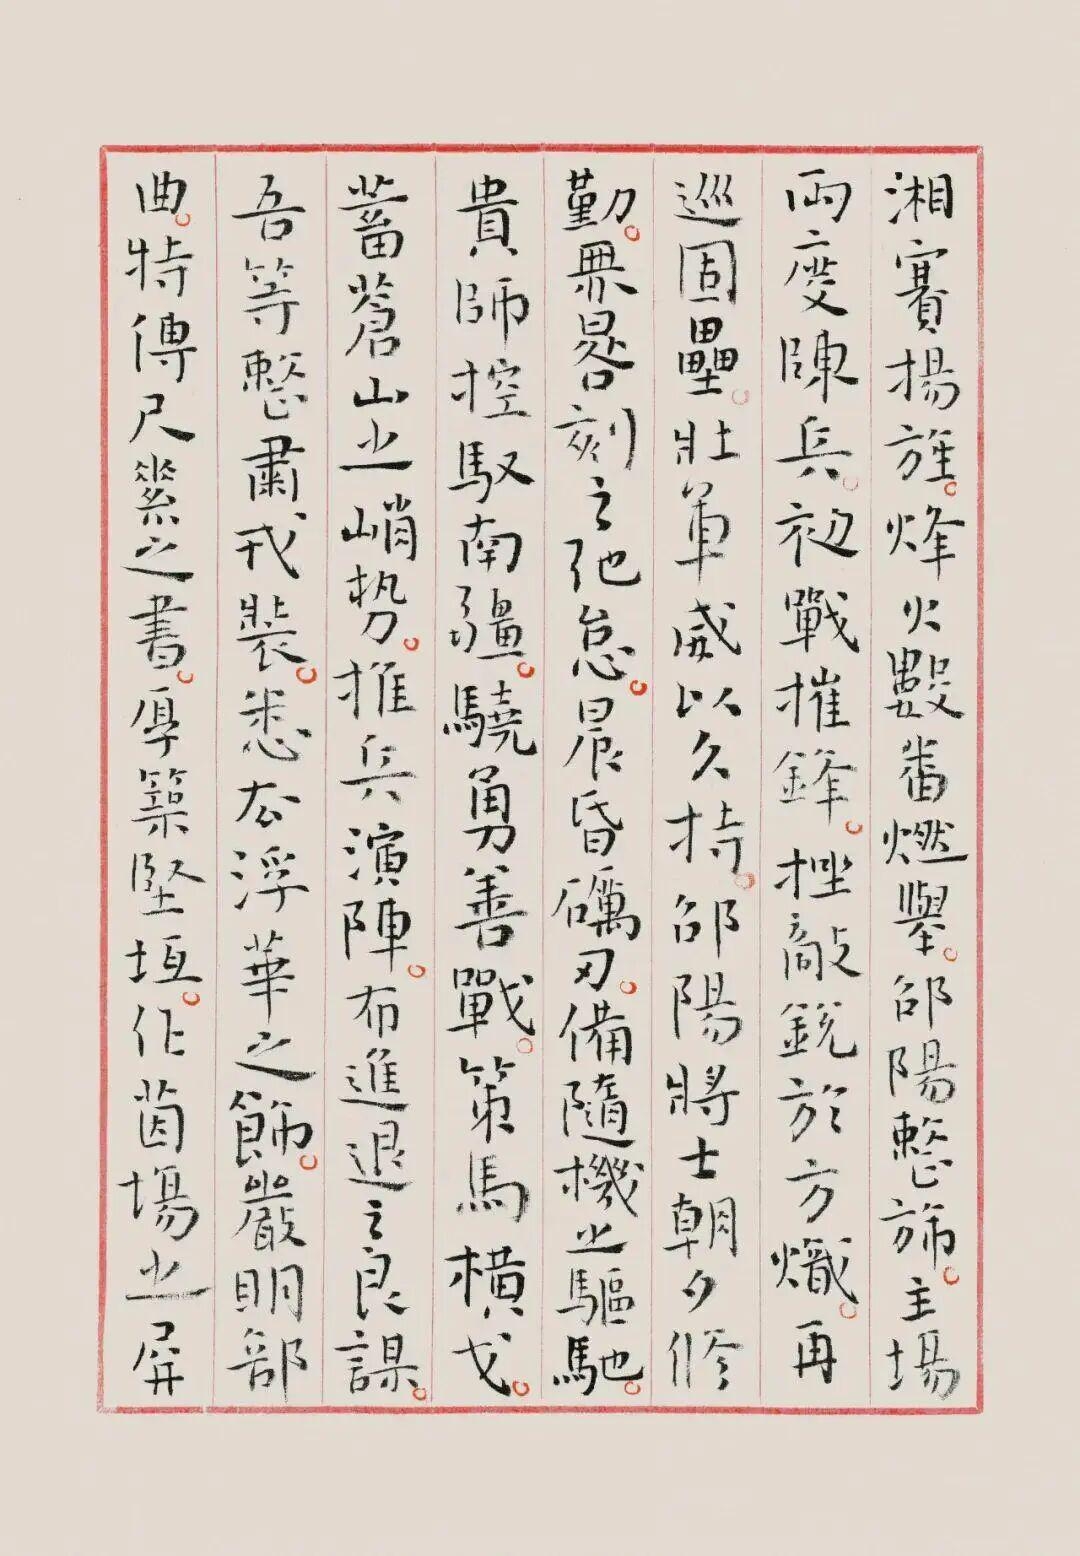 湘賽揚旌。烽火數番燃舉。邵陽整斾。主場
兩度陳兵。初戰摧鋒。挫敵銳於方熾。再
巡固壘。壯軍威以久持。邵陽將士朝夕修
勤。無晷刻之弛怠。晨昏礪刃。備隨機之驅馳。
貴師控馭南疆。驍勇善戰。策馬橫戈。
蓄蒼山之峭勢。推兵演陣。布進退之良謀。
吾等整肅戎裝。悉去浮華之飾。嚴明部
曲。特傳尺素之書。厚築堅垣。作茵場之屏